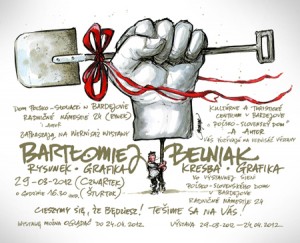 DOM POLSKO-SŁOWACKI W BARDEJOVIE
RADNIČNÉ NÁMESTIE 24
I AUTOR
ZAPRASZAJĄ NA WERNISAŻ WYSTAWY
KULTÚRNE A TURISTICKÉ
CENTRUM V BARDEJOVE
"POĽSKO-SLOVENSKÝ DOM"
A AUTOR
VÁS POZÝVAJÚ NA VERNISÁŽ VÝSTAVY
BARTŁOMIEJ BELNIAK
RYSUNEK · GRAFIKA
KRESBA · GRAFIKA
29-03-2012 (CZWARTEK)
(ŠTVRTOK)
O GODZINIE 16.30
VO VÝSTAVNEJ SIENI
POĽSKO-SLOVENSKÉHO DOMU
V BARDEJOVE
RADNIČNÉ NÁMESTIE 24
CIESZYMY SIĘ, ŻE BĘDZIESZ! TEŠÍME SA NA VÁS!
WYSTAWĘ MOŻNA OGLĄDAĆ DO 24.04.2012.
VÝSTAVA 29-03-2012 - 24.04.2012